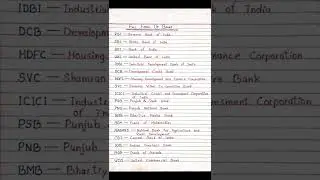 Full Form Of Bank
RBI — Reserve Bank of India
SBI — State Bank of India
BOI — Bank of India
UBI — United Bank of India
IDBI — Industrial Development Bank of India
DCB — Development Credit Bank
HDFC — Housing Development and Finance Corporation
SVC — Shamrao Vithal Co-operative Bank
ICICI — Industrial Credit and Investment Corporation of India
PSB — Punjab & Sind Bank
PNB — Punjab National Bank
BMB — Bhartiya Mahila Bank
BOM — Bank of Maharashtra
NABARD — National Bank for Agriculture and Rural Development
CBI — Central Bank of India
IOB — Indian Overseas Bank
BOB — Bank of Baroda
UCO — United Commercial Bank
IDBI — Industri
of India
DCB — Develop
HDFC — Housing
nance Corporation
SVC — Shamran
Bank
ICICI — Industr
ment Corporation
of In
PSB — Punjab
PNB — Punjab
BMB — Bhartiy